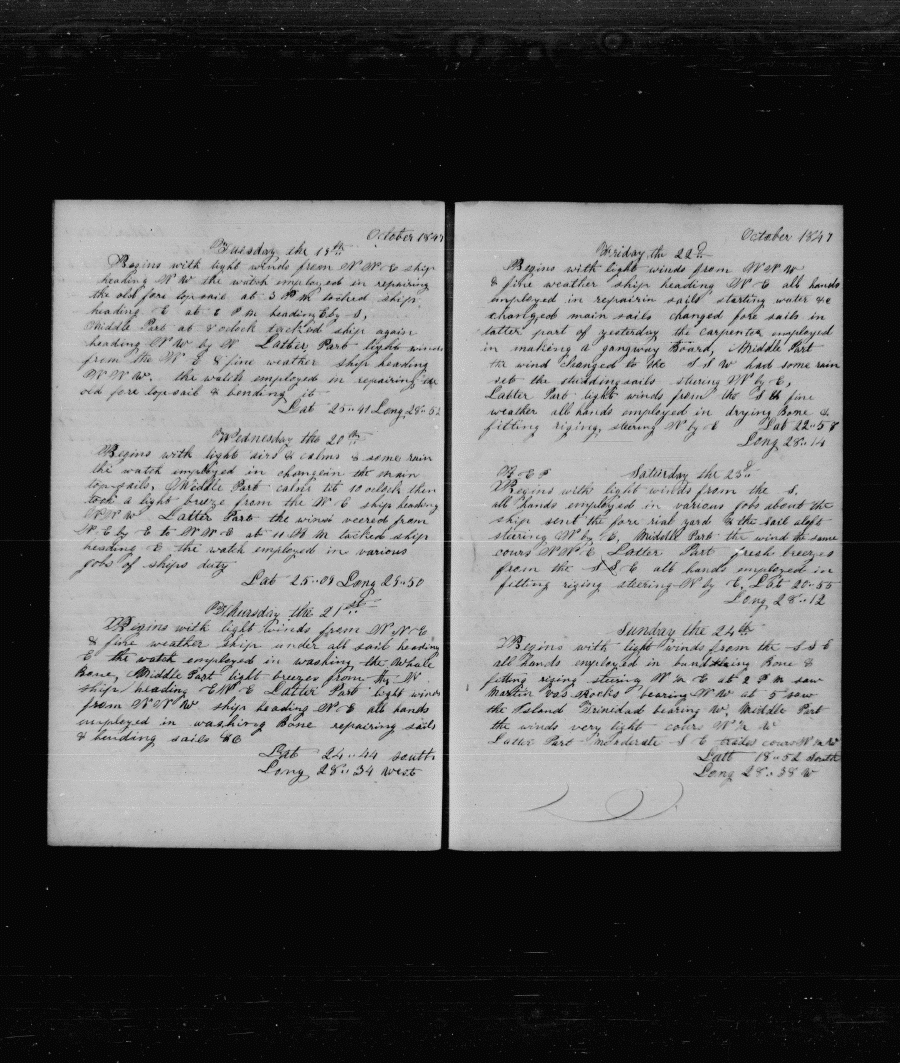 October 1847
Tuesday the 19th
Begins with light winds from N N E ship
heading N W the watch employed in repairing
the old fore topsail at 3 P M tacked ship
heading E at P M heading E by S,
Middle Part at 8 oclock tacked ship again
heading N W by N Latter Part light winds
from the N E & fine weather ship heading
N N W. the watch employed in repairing the
old fore topsail & bending it
Lat 25..41 Long 28..52
Wednesday the 20th
Begins with light airs & calms & some rain
the watch employed in changein the main
topsails, Middle Part calm til 10 oclock then
took a light breeze from the N E ship heading
N N W Latter Part the winds veered from
N E by E to N N E at 11 A M tacked ship
heading E the watch employed in various
jobs of ships duty
Lat 25..09 Long 29..50
Thursday the 21st
Begins with light winds from N N E
& fine weather ship under all sail heading
E the watch employed in washing the Whale
Bone, Middle Part light breezes from the N
ship heading E N E Latter Part light winds
from N N W ship heading N E all hands
employed in washing Bone repairing sails
& bending sails &c
Lat 24..44 south
Long 28..34 west
October 1847
Friday th 22d
Begins with light winds from N N W
& fine weather ship heading N E all hands
employed in repairin sails starting water &c
changed main sails changed fore sails in
latter part of yesterday the carpenter employed
in making a gangway board, Middle Part
the wind changed to the S S W had some rain
set the studdingsails stering N by E,
Latter Part light winds from the S & fine
weather all hands employed in drying Bone &
fitting riging, steering N by E Lat 22..58
Long 28..14
Saturday the 23d
Begins with light winds from the S.
all hands employed in various jobs about the
ship sent the fore rial yard & the sail aloft
steering N by E, Middle Part the wind the same
cours N N E Latter Part fresh breezes
from the S S E all hands employed in
fitting riging steering N by E, Lat 20..55
Long 28..12
Sunday the 24th
Begins with light winds from the S S E
all hands employed in bundleing Bone &
fitting riging stering N E at 2 P M saw
Martin vas Rocks bearing N W at 5 saw
the Island Trinedad bearing W, Middle Part
the winds very light cours N W
Latter Part moderate S E cours N W
Latt 18..52 South
Long 28..38 W